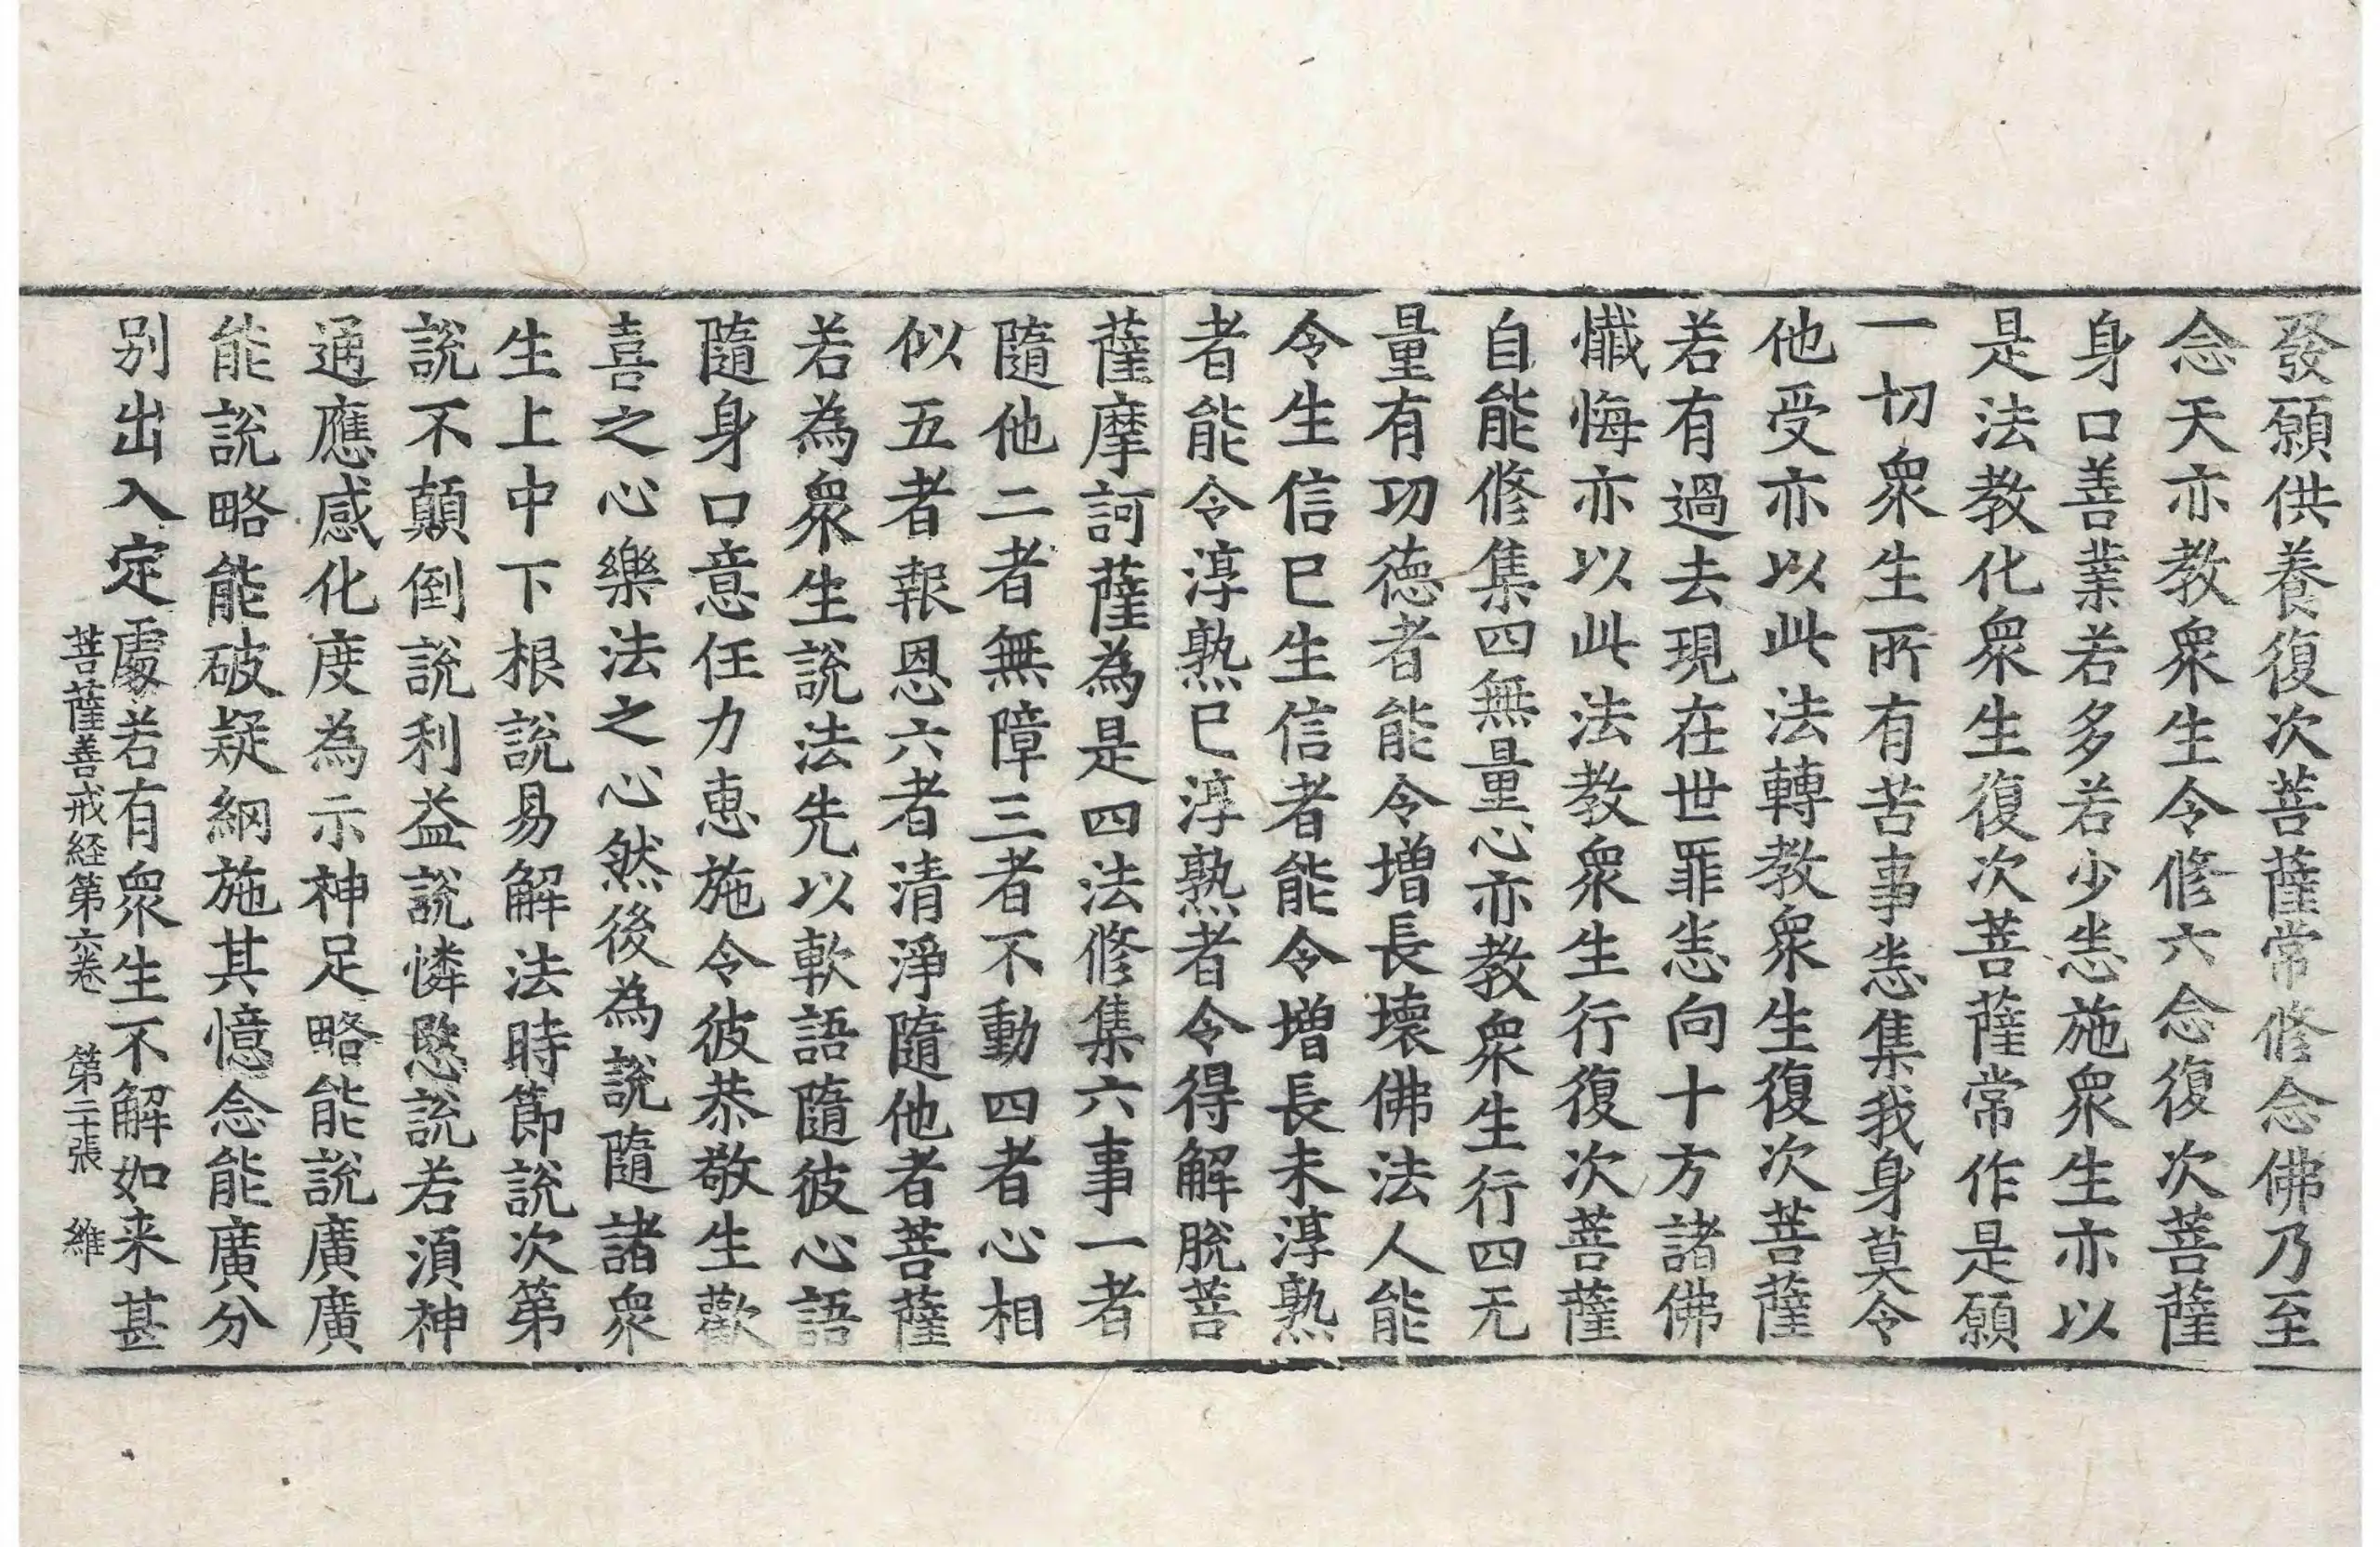 發願供養復次菩薩常修念佛乃至
念天亦教衆生令修六念復次菩薩
身口善業若多若少恙施衆生亦以
是法教化衆生復次菩薩常作是願
一切衆生所有苦事恙集我身莫令
他受亦以此法轉教衆生復次菩薩
若有過去現在世罪恙向十方諸佛
懺悔亦以此法教衆生行復次菩薩
自能修集四無量心亦教衆生行四无
量有功德者能令增長壞佛法人能
令生信已生信者能令增長未淳熟
者能令淳熟已淳熟者令得解脫菩
薩摩訶薩為是四法修集六事一者
隨他二者無障三者不動四者心相
似五者報恩六者清淨隨他者菩薩
若為衆生說法先以軟語隨彼心語
隨身口意任力恵施令彼恭敬生歡
喜之心樂法之心然後為說隨諸衆
生上中下根說易解法時節說次第
說不顛倒說利益說憐愍說若湏神
通應感化度為示神足略能說廣廣
能說略能破疑網施其憶念能廣分
别出入定處若有衆生不解如来甚
菩薩善戒経第六卷 第二十張 維